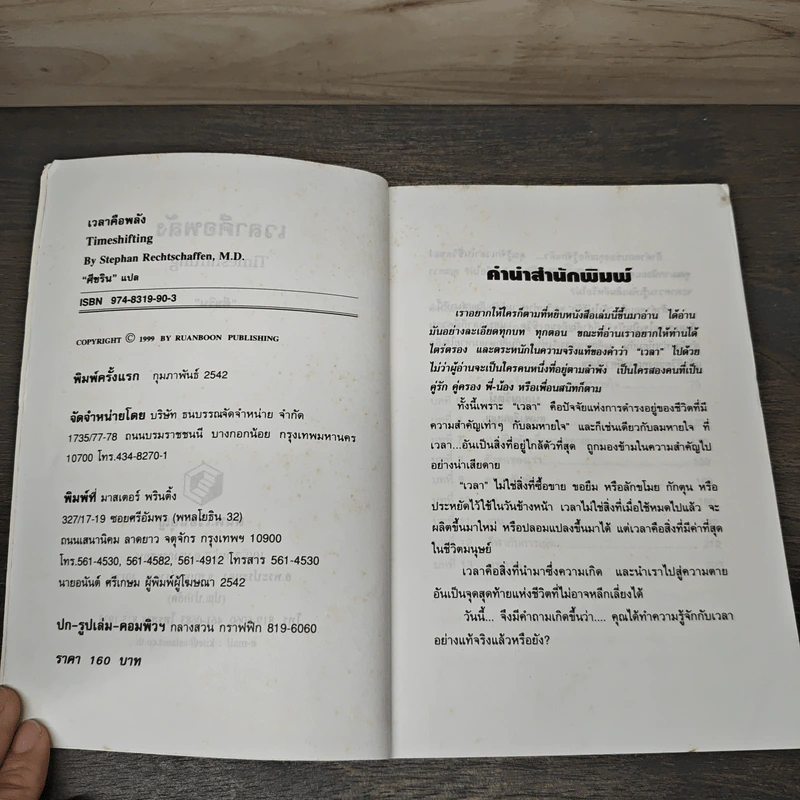 เวลาคือพลัง
Timeshifting
By Stephan Rechtschaffen, M.D.
"ศีขริน" แปล
ISBN 974-8319-90-3
COPYRIGHT © 1999 BY RUANBOON PUBLISHING
พิมพ์ครั้งแรก กุมภาพันธ์ 2542
จัดจำหน่ายโดย บริษัท ธนบรรณจัดจำหน่าย จำกัด
1735/77-78 ถนนบรมราชชนนี บางกอกน้อย กรุงเทพมหานคร
10700 โทร.434-8270-1
พิมพ์ที่ มาสเตอร์ พรินติ้ง
327/17-19 ซอยศรีอัมพร (พหลโยธิน 32)
ถนนเสนานิคม ลาดยาว จตุจักร กรุงเทพฯ 10900
โทร.561-4530, 561-4582, 561-4912 โทรสาร 561-4530
นายอนันต์ ศรีเกษม ผู้พิมพ์ผู้โฆษณา 2542
ปก-รูปเล่ม-คอมพิวฯ กลางสวน กราฟฟิก 819-6060
ราคา 160 บาท
คำนำสำนักพิมพ์
เราอยากให้ใครก็ตามที่หยิบหนังสือเล่มนี้ขึ้นมาอ่าน ได้อ่าน
มันอย่างละเอียดทุกบท ทุกตอน ขณะที่อ่านเราอยากให้ท่านได้
ไตร่ตรอง และตระหนักในความจริงแท้ของคำว่า "เวลา" ไปด้วย
ไม่ว่าผู้อ่านจะเป็นใครคนหนึ่งที่อยู่ตามลำพัง เป็นใครสองคนที่เป็น
คู่รัก คู่ครอง พี่-น้อง หรือเพื่อนสนิทก็ตาม
ทั้งนี้เพราะ "เวลา" คือปัจจัยแห่งการดำรงอยู่ของชีวิตที่มี
ความสำคัญเท่าๆ กับลมหายใจ และก็เช่นเดียวกับลมหายใจ ที่
เวลา...อันเป็นสิ่งที่อยู่ใกล้ตัวที่สุด ถูกมองข้ามในความสำคัญไป
อย่างน่าเสียดาย
"เวลา" ไม่ใช่สิ่งที่ซื้อขาย ขอยืม หรือลักขโมย กักตุน หรือ
ประหยัดไว้ใช้ในวันข้างหน้า เวลาไม่ใช่สิ่งที่เมื่อใช้หมดไปแล้ว จะ
ผลิตขึ้นมาใหม่ หรือปลอมแปลงขึ้นมาได้ แต่เวลาคือสิ่งที่มีค่าที่สุด
ในชีวิตมนุษย์
เวลาคือสิ่งที่นำมาซึ่งความเกิด และนำเราไปสู่ความตาย
อันเป็นจุดสุดท้ายแห่งชีวิตที่ไม่อาจหลีกเลี่ยงได้
วันนี้... จึงมีคำถามเกิดขึ้นว่า.... คุณได้ทำความรู้จักกับเวลา
อย่างแท้จริงแล้วหรือยัง?